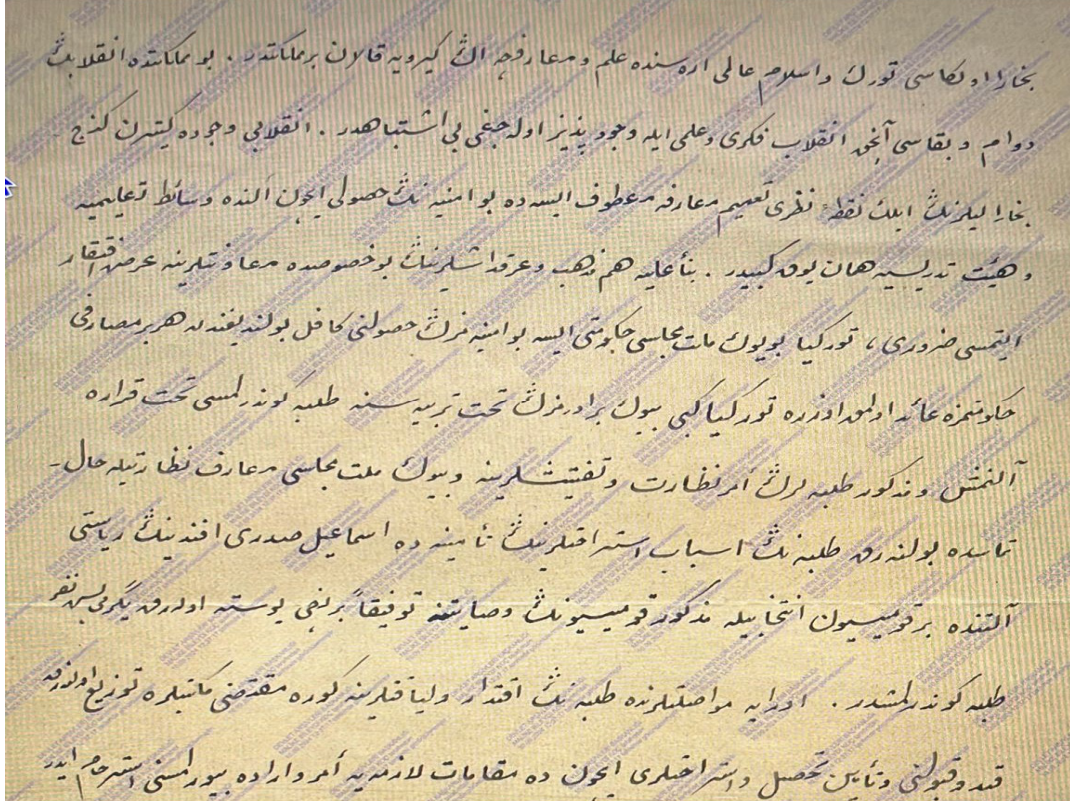 بخارا اولكاسی تورك و اسلام عالمی اره سنده علم و معارفجه اڭ كیرویه قالان بر مملكتدر . بو مملكتده انقلابڭ
دوام و بقاسی آنجق انقلاب فكری و علمی ایله وجود پذیر اوله جغی بی اشتباهدر . انقلابی وجوده كیترن كنج
بخارالیلرنڭ ایلك نقطهٔ نظری تعمیم معارفه معطوف ایسه ده بو امنیه نڭ حصولی ایچون النده وسائط تعلیمیه
و هیئت تدریسیه همان یوق كبیدر . بنأ علیه هم مذهب و عرقداشلرینڭ بو خصوصده معاونتلرینه عرض افتقار
ایتمسی ضروری ، توركیا بویوك ملت مجلسی حكومتی ایسه بو امنیه مزڭ حصولنی كافل بولندیغندن هر بر مصارفی
حكومتمزه عائد اولمق اوزره توركیا كبی بیوك برادرمزڭ تحت تربیه سنه طلبه كوندرلمسی تحت قراره
آلنمش و مذكور طلبه لرڭ أمر نظارت و تفتیشلرینه و بیوك ملت مجلسی معارف نظارتیله حال -
تماسده بولنه رق طلبه نڭ اسباب استراحتلرینڭ تأمینه ده اسماعیل صدری افندینڭ ریاستی
آلتنده بر قومیسیون انتخابیله مذكور قومیسیونڭ وصایتنه توفیقاً برنجی پوسته اوله رق یگرمی بش نفر
طلبه كوندرلمشدر . اورایه مواصلتلرنده طلبه نڭ اقتدار و لیاقتلرینه كوره مقتضی مكتبلره توزیع اولنه رق
قید و قبولنی و تأمین تحصیل و استراحتلری ایچون ده مقامات لازمه یه أمر و اراده بیورلمسنی استرحام ایدر